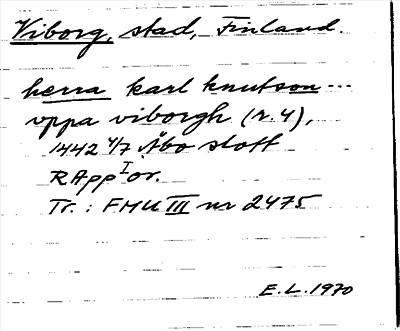 Viborg, stad, Finland.
herra karl knutson ...
vppa viborgh (r. 4),
1442 4/7 Åbo slott
RApp I or.
Tr.: FMU III nr 2475
E.L. 1970